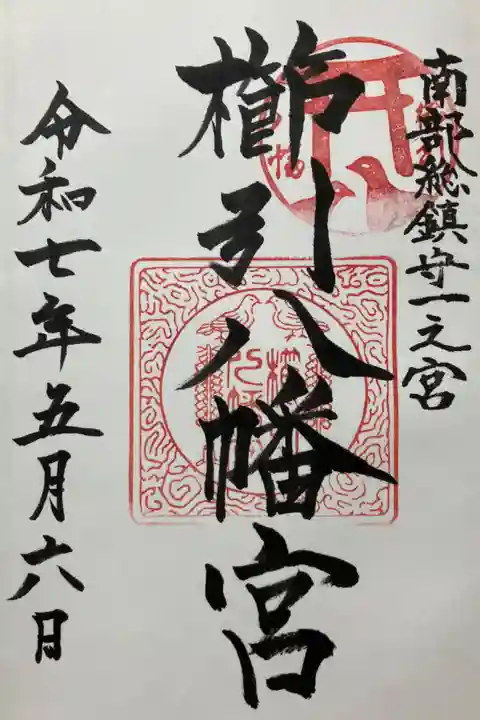 南部総鎮守一之宮
櫛引八幡宮
令和七年五月六日